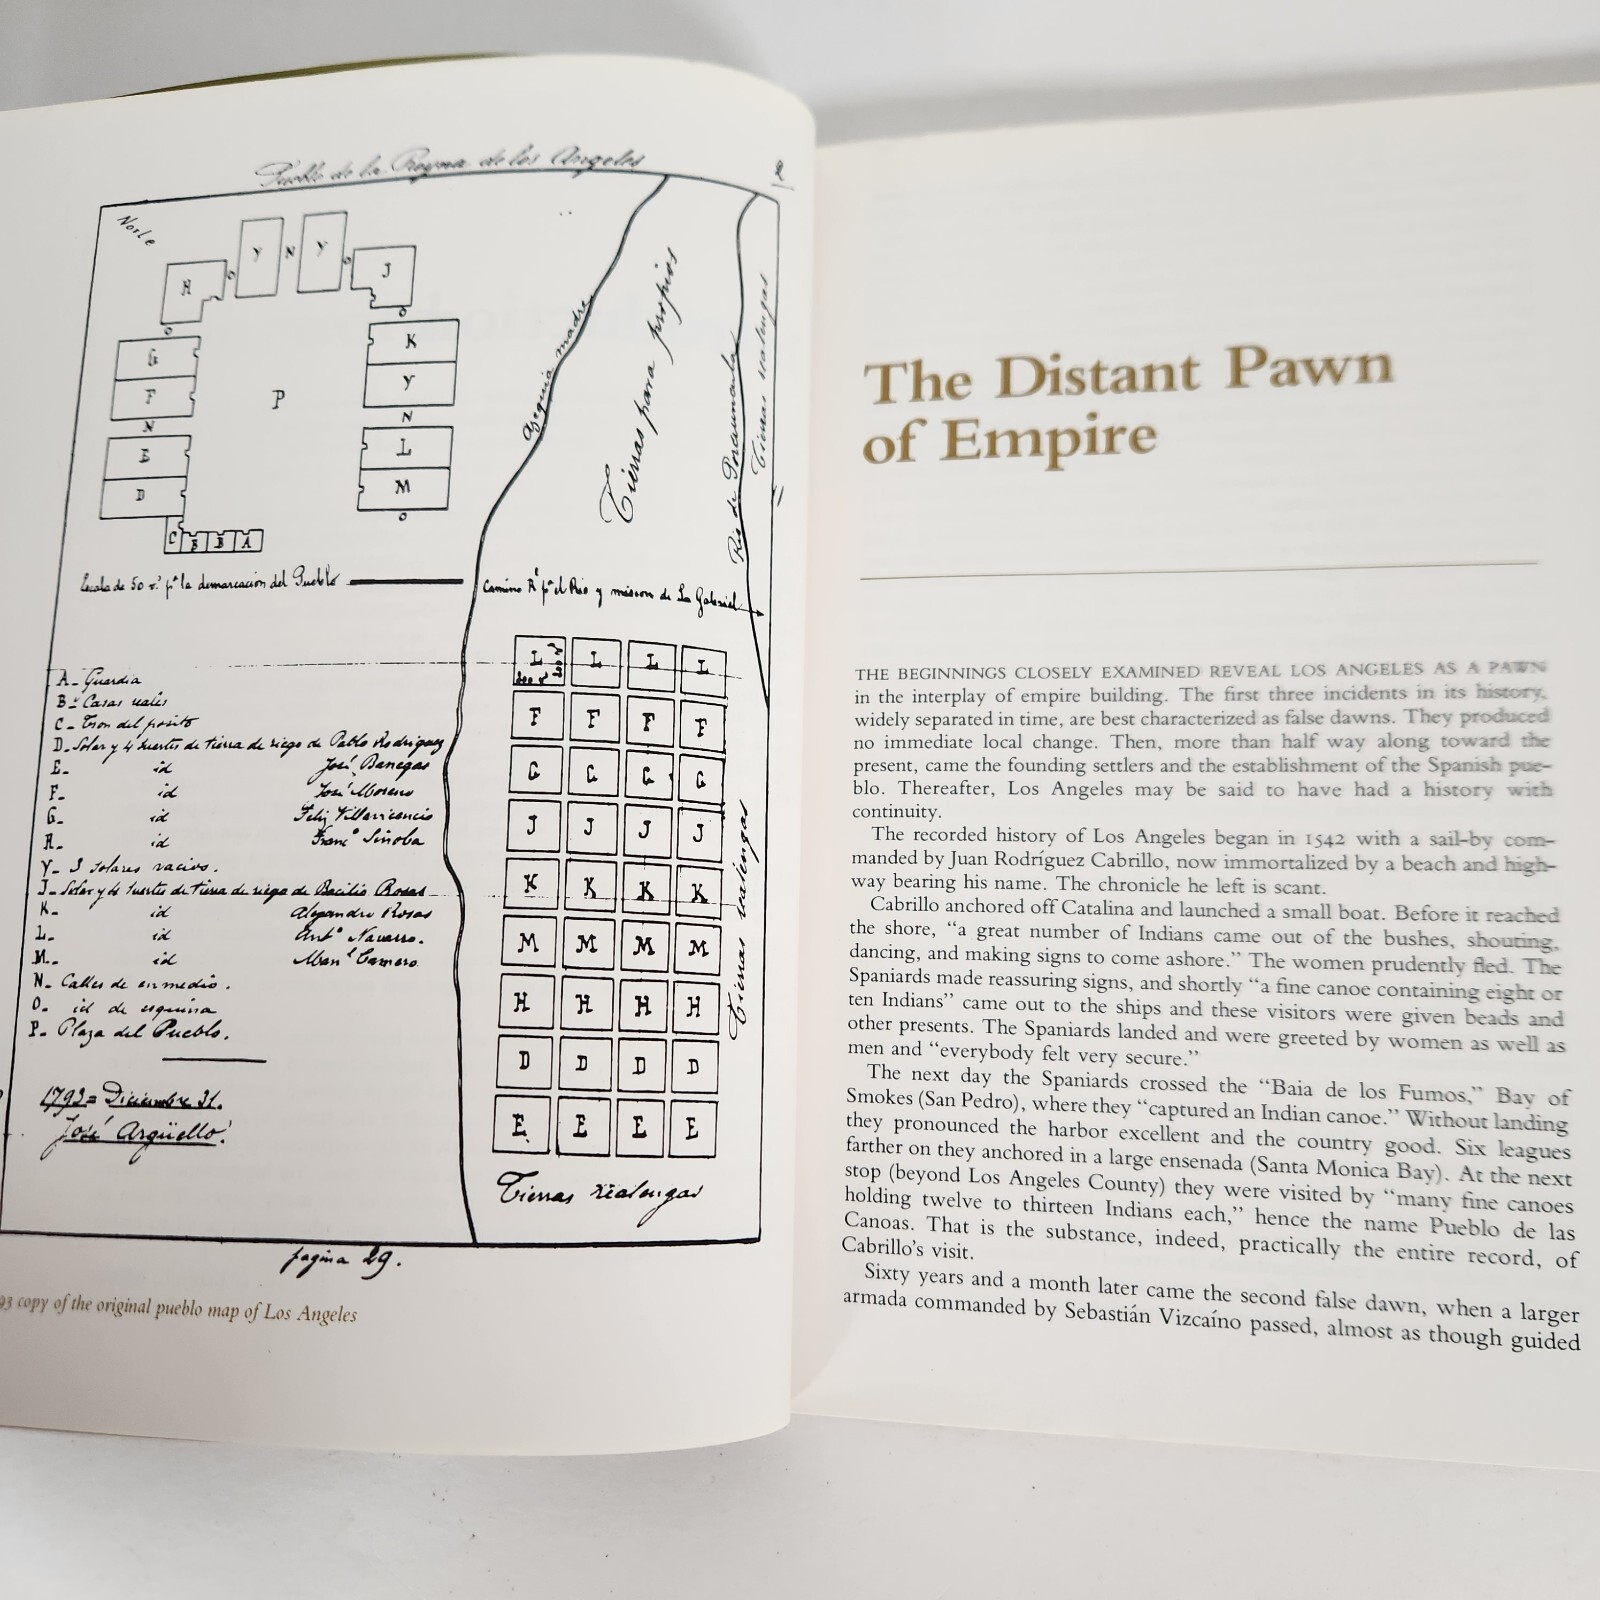 Pueblo de la Reyna de los Angeles
2
Norle
Y N Y
H O O J
O O
G K
F P Y
N N
E L
D M
C B B A O
Azequia madre
Tierras para propios
Rio de Porciuncula
Tierras realengas
Escala de 50 v.s p.a la demarcacion del Pueblo
Camino R.l p.a el Rio y mision de Sn Gabriel
A - Guardia
B - Casas reales
C - Tron del posito
D - Solar y 4 suertes de tierra de riego de Pablo Rodriguez
E - id José Banegas
F - id José Moreno
G - id Feliz Villavicencio
H - id Franc.o Sinoba
Y - 3 solares vacios.
J - Solar y 4 suertes de tierra de riego de Bacilio Rosas
K - id Alejandro Rosas
L - id Ant.o Navarro.
M - id Man.l Camero
N - Calles de en medio.
O - id de esquina
P - Plaza del Pueblo.
1793 = Diciembre 31.
José Argüello.
L L L L
200 v.s 200 v.s
F F F F
G G G G
J J J J
K K K K
M M M M
H H H H
D D D D
E E E E
Tierras realengas
Tierras realengas
pagina 29.
93 copy of the original pueblo map of Los Angeles
The Distant Pawn
of Empire
THE BEGINNINGS CLOSELY EXAMINED REVEAL LOS ANGELES AS A PAWN
in the interplay of empire building. The first three incidents in its history,
widely separated in time, are best characterized as false dawns. They produced
no immediate local change. Then, more than half way along toward the
present, came the founding settlers and the establishment of the Spanish pue-
blo. Thereafter, Los Angeles may be said to have had a history with
continuity.
The recorded history of Los Angeles began in 1542 with a sail-by com-
manded by Juan Rodríguez Cabrillo, now immortalized by a beach and high-
way bearing his name. The chronicle he left is scant.
Cabrillo anchored off Catalina and launched a small boat. Before it reached
the shore, “a great number of Indians came out of the bushes, shouting,
dancing, and making signs to come ashore.” The women prudently fled. The
Spaniards made reassuring signs, and shortly “a fine canoe containing eight or
ten Indians” came out to the ships and these visitors were given beads and
other presents. The Spaniards landed and were greeted by women as well as
men and “everybody felt very secure.”
The next day the Spaniards crossed the “Baia de los Fumos,” Bay of
Smokes (San Pedro), where they “captured an Indian canoe.” Without landing
they pronounced the harbor excellent and the country good. Six leagues
farther on they anchored in a large ensenada (Santa Monica Bay). At the next
stop (beyond Los Angeles County) they were visited by “many fine canoes
holding twelve to thirteen Indians each,” hence the name Pueblo de las
Canoas. That is the substance, indeed, practically the entire record, of
Cabrillo’s visit.
Sixty years and a month later came the second false dawn, when a larger
armada commanded by Sebastián Vizcaíno passed, almost as though guided